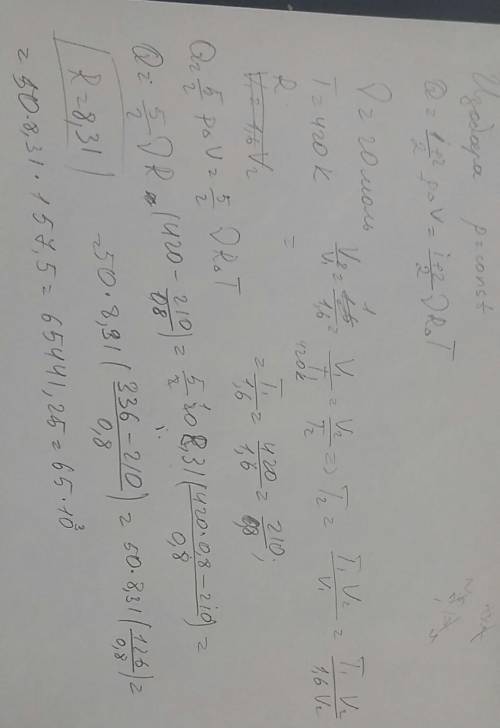 Изобара p=const
Q = i+2/2 pΔV = i+2/2 νRΔT
ν = 20 моль
T = 420 K
V2/V1 = 1/1,6 = V1/T1 = V2/T2 => T2 = T1V2/V1 = T1V2/1,6V2
= T1/1,6 = 420/1,6 = 210/0,8;
V1 = 1,6V2
Q = 5/2 pΔV = 5/2 νRΔT
Q = 5/2 νR (420 - 210/0,8) = 5/2 20 8,31 (420·0,8-210/0,8) =
=50·8,31 (336-210/0,8) = 50·8,31 (126/0,8) =
R=8,31
= 50·8,31·157,5 = 65441,25 = 65·10³